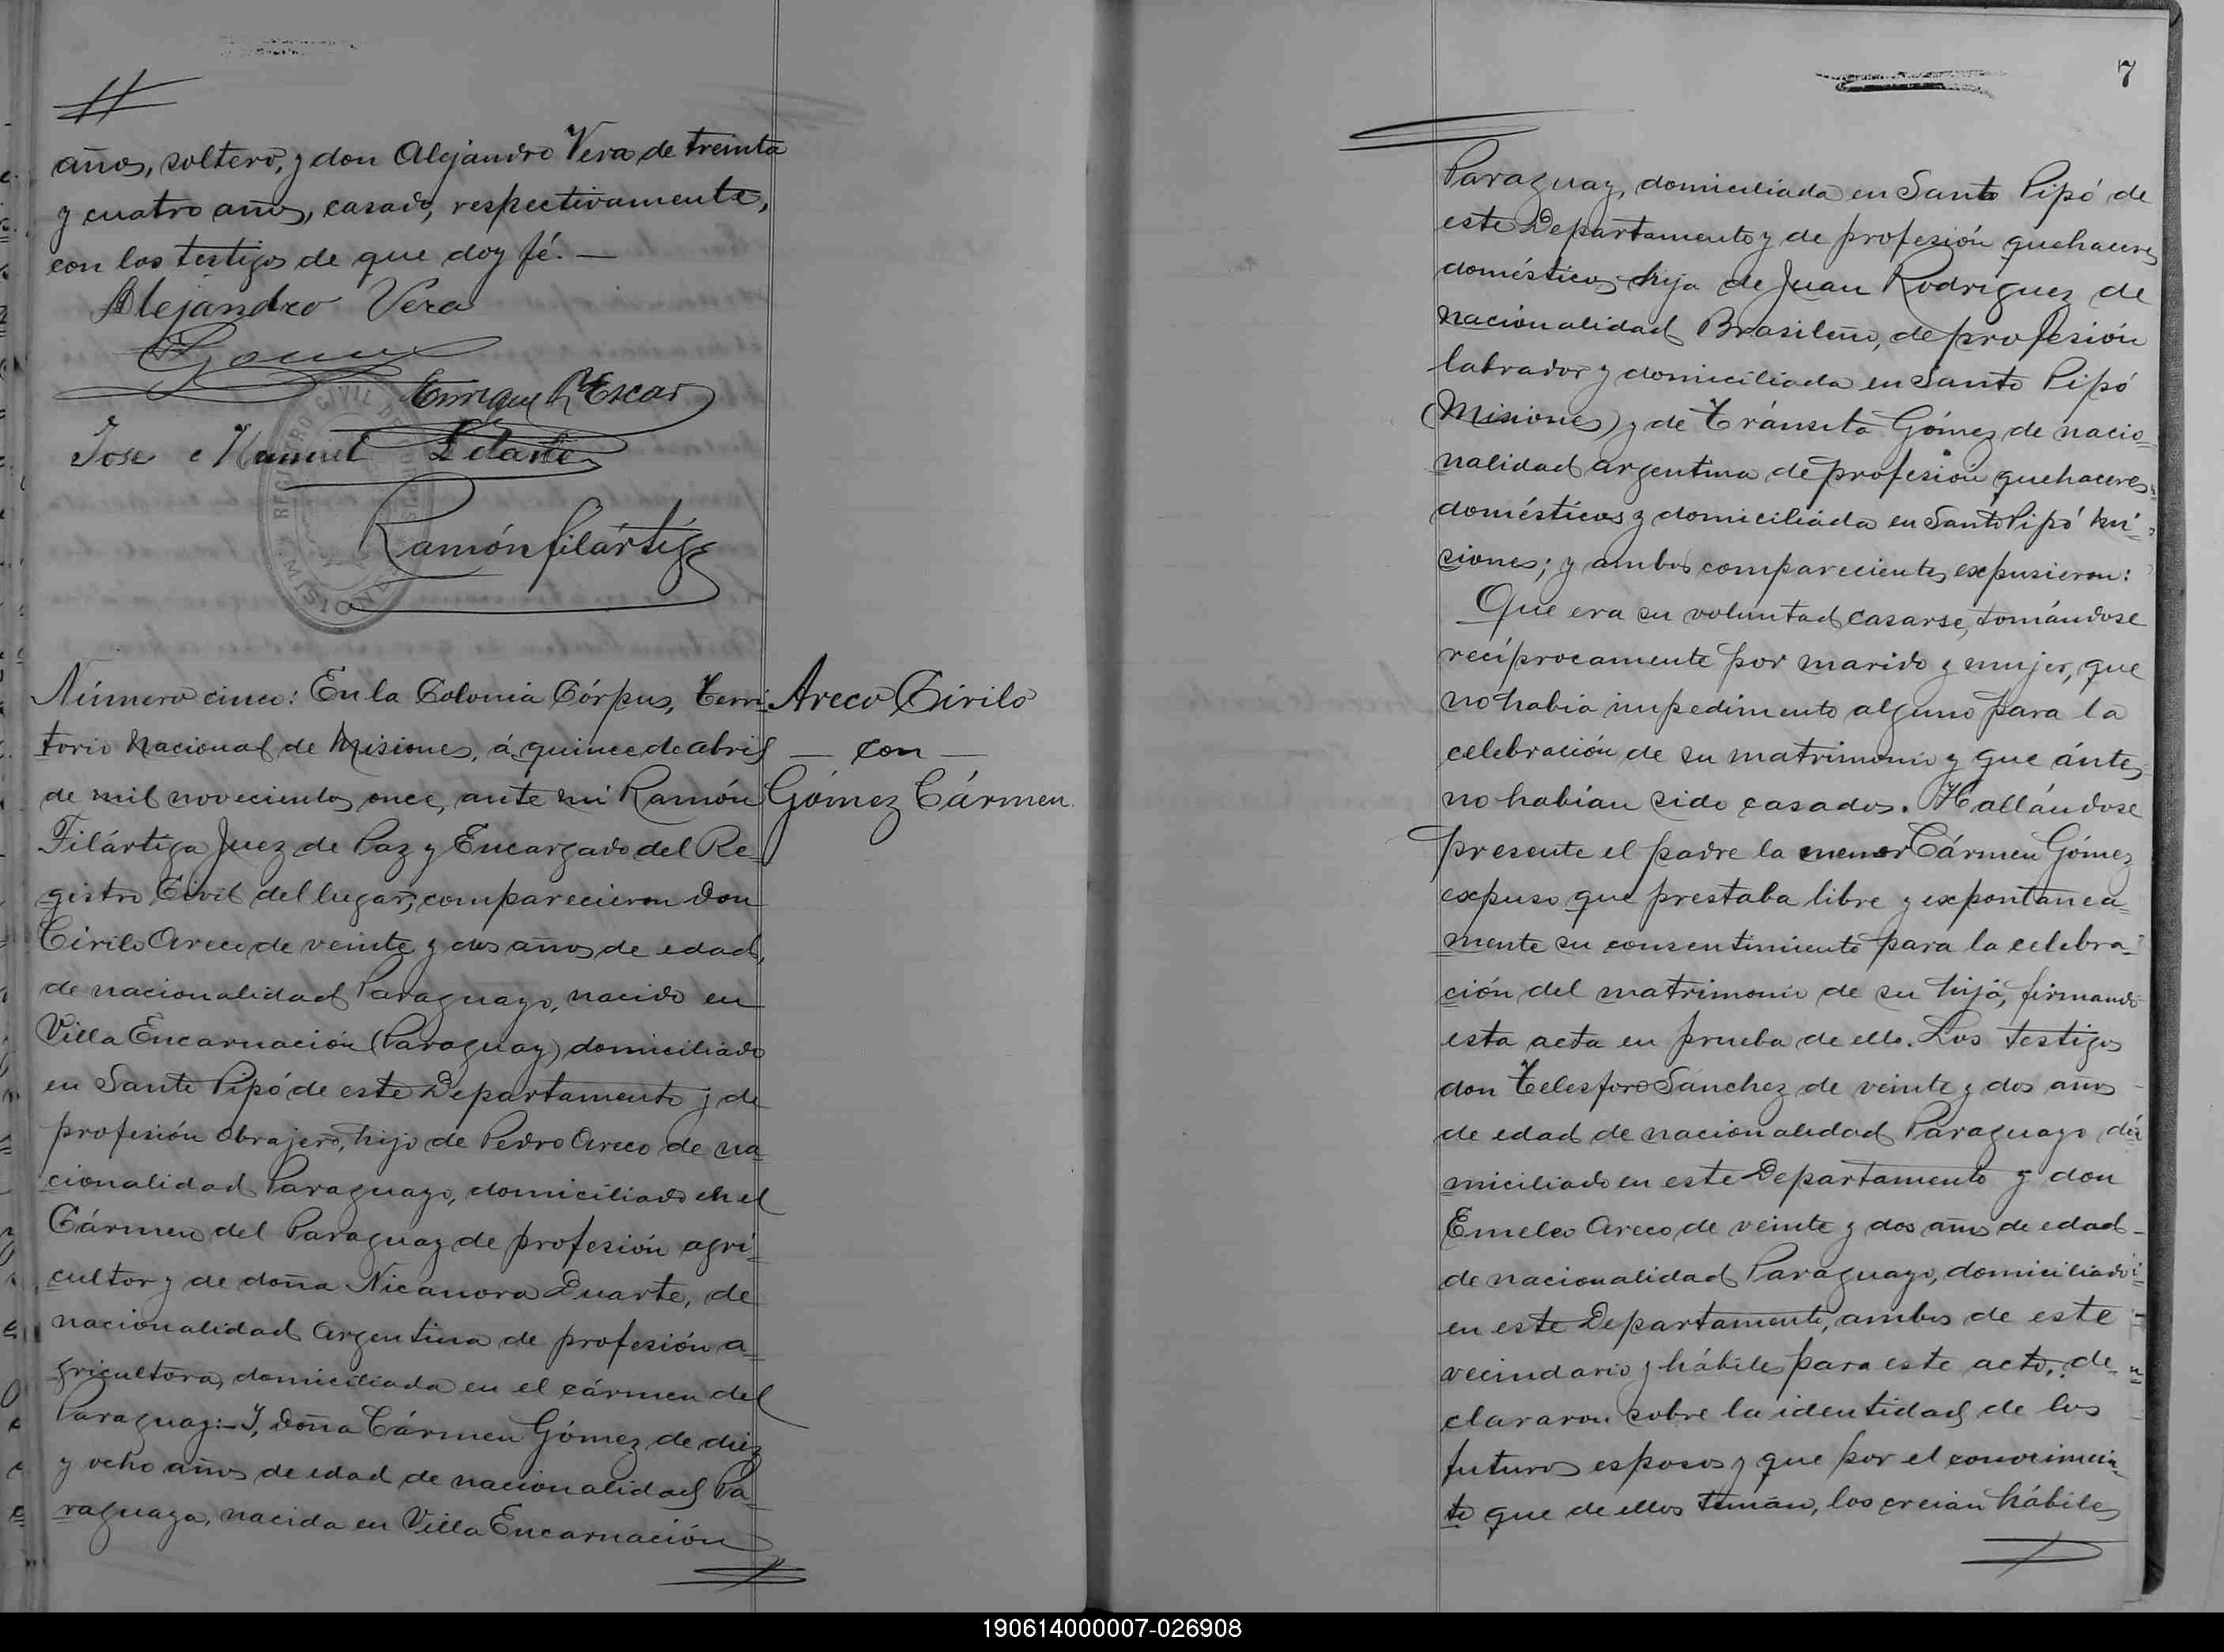 años, soltero, y don Alejandro Vera de treinta
y cuatro años, casado, respectivamente,
con los testigos de que doy fé.—
Alejandro Vera
Enrique R Escar
Jose Manuel
Ramón filártiga
REGISTRO CIVIL DE
MISIONES
Número cinco: En la Colonia Córpus, Terri-
torio Nacional de Misiones, á quince de abril
de mil novecientos once, ante mi Ramón
Filártiga Juez de Paz y Encargado del Re-
gistro Civil del lugar, comparecieron don
Cirilo Areco de veinte y dos años de edad,
de nacionalidad Paraguayo, nacido en
Villa Encarnación (Paraguay) domiciliado
en Santo Pipó de este Departamento y de
profesión obrajero, hijo de Pedro Areco de na-
cionalidad Paraguayo, domiciliado en el
Cármen del Paraguay de profesión agri-
cultor y de doña Nicanora Duarte, de
nacionalidad Argentina de profesión a-
gricultora, domiciliada en el cármen del
Paraguay:- Y, doña Cármen Gómez de diez
y ocho años de edad de nacionalidad Pa-
raguaya, nacida en Villa Encarnación
Areco Cirilo
— con —
Gómez Cármen.
7
Paraguay, domiciliada en Santo Pipó de
este Departamento y de profesión quehaceres
domésticos hija de Juan Rodriguez de
nacionalidad Brasileño, de profesión
labrador y domiciliada en Santo Pipó
(Misiones) y de Tránsita Gómez de nacio-
nalidad argentina de profesión quehaceres
domésticos y domiciliada en Santo Pipó Mi-
siones; y ambos comparecientes expusieron:
Que era su voluntad casarse, tomándose
recíprocamente por marido y mujer, que
no habia impedimento alguno para la
celebración de su matrimonio y que ántes
no habían sido casados. Hallándose
presente el padre la menor Cármen Gómez
expuso que prestaba libre y expontanea-
mente su consentimiento para la celebra-
ción del matrimonio de su hija, firmando
esta acta en prueba de ello. Los testigos
don Telesforo Sanchez de veinte y dos años
de edad de nacionalidad Paraguayo do-
miciliado en este Departamento y don
Emelco Areco de veinte y dos años de edad-
de nacionalidad Paraguayo, domiciliado
en este Departamento, ambos de este
vecindario y hábiles para este acto, de-
clararon sobre la identidad de los
futuros esposos y que por el conocimien-
to que de ellos tenían, los creian hábiles
190614000007-026908